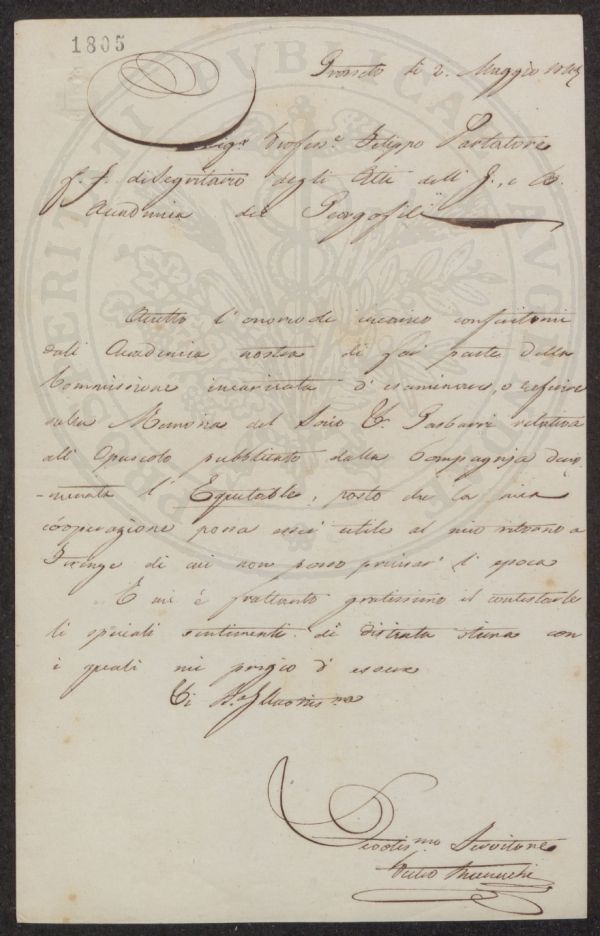 1805
Grosseto li 2. Maggio
Sig.r Profess.e Filippo Parlatore
f. f. di Segretario degli Atti dell' I. e R.
Accademia dei Georgofili
Accetto l'onorevole incarico conferitomi
dall Accademia nostra di far parte della
Commissione incaricata d'esaminare, o referire
sulla Memoria del Socio relativa
all Opuscolo pubblicato dalla Compagnia deno
-minata l' Equitable, posto che la mia
cooperazione possa esser utile al mio ritorno a
Firenze di cui non posso precisar l'epoca
E mi è frattanto gratissimo il contestarle
li speciali sentimenti di distinta stima con
i quali mi pregio d'essere
Di
Devotis.mo Servitore